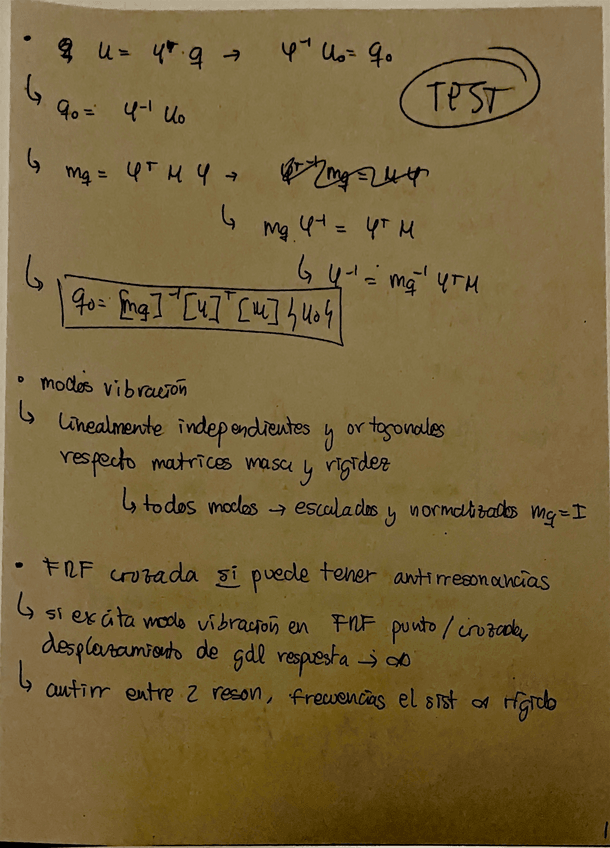 • U = φᵀ · q → φ⁻¹ U₀ = q₀
TEST
↳ q₀ = φ⁻¹ U₀
↳ mq = φᵀ M φ →
↳ mq φ⁻¹ = φᵀ M
↳ φ⁻¹ = mq⁻¹ φᵀ M
↳ q₀ = [mq]⁻¹ [φ]ᵀ [M] {U₀}
• modos vibración
↳ linealmente independientes y ortogonales
respecto matrices masa y rigidez
↳ todos modos → escalados y normalizados mq = I
• FRF cruzada si puede tener antirresonancias
↳ si excita modo vibración en FRF punto/cruzada,
desplazamiento de gdl respuesta → ∞
↳ antirr entre 2 reson, frecuencias el sist ∞ rígido
1